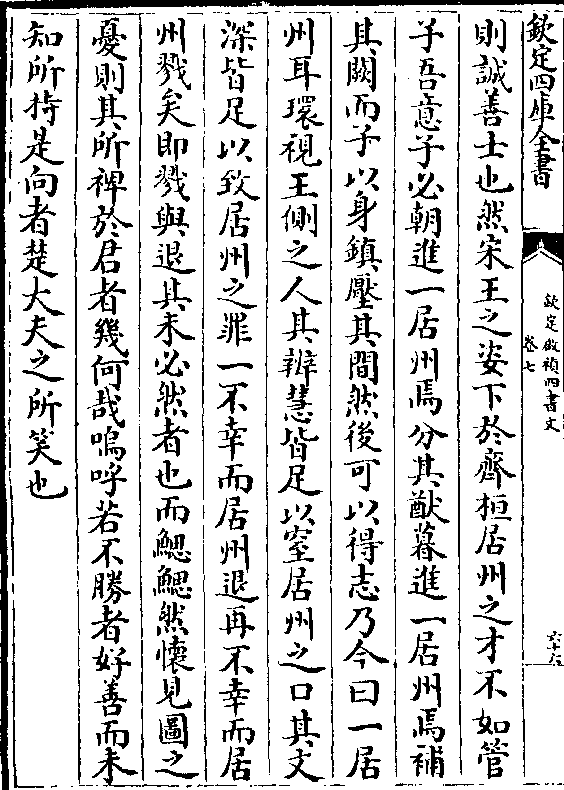 欽定四庫全書
欽定啟禎四書文
卷七
則誠善士也然宋王之姿下於齊桓居州之才不如管
子吾意子必朝進一居州焉分其猷暮進一居州焉補
其闕而子以身鎮壓其間然後可以得志乃今曰一居
州耳環視王側之人其辨慧皆足以窒居州之口其文
深皆足以致居州之罪一不幸而居州退再不幸而居
州戮矣即戮與退其未必然者也而鰓鰓然懷見圖之
憂則其所裨於君者幾何哉嗚呼若不勝者好善而未
知所持是向者楚大夫之所笑也